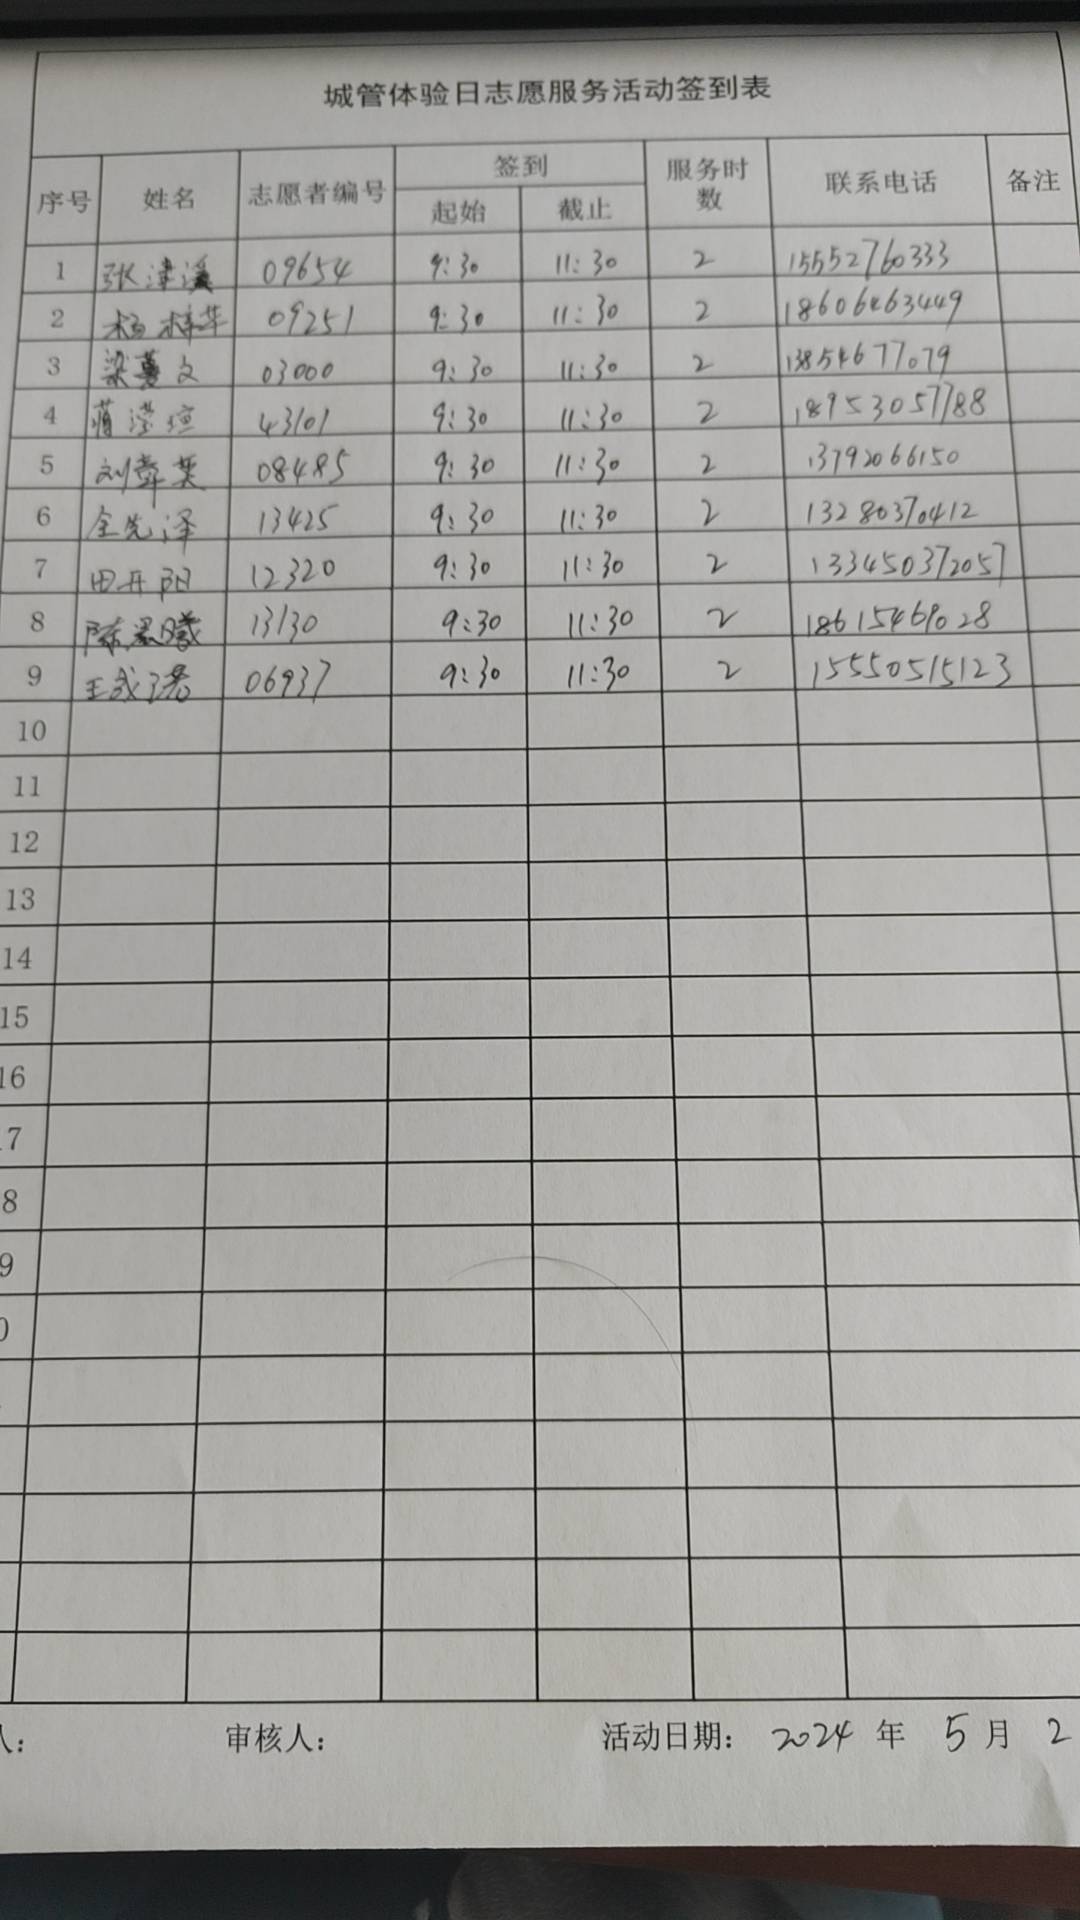 城管体验日志愿服务活动签到表
序号 姓名 志愿者编号 签到 服务时数 联系电话 备注
起始 截止
1 张津溪 09654 9:30 11:30 2 15552760333
2 杨梓华 09251 9:30 11:30 2 18606463449
3 梁蔓文 03000 9:30 11:30 2 13854677079
4 蒲滢瑄 43101 9:30 11:30 2 18953057788
5 刘 英 08485 9:30 11:30 2 13792066150
6 全先泽 13425 9:30 11:30 2 13280370412
7 田开阳 12320 9:30 11:30 2 133450372057
8 陈 曦 13130 9:30 11:30 2 18615469028
9 王成 06937 9:30 11:30 2 15550515123
10
11
12
13
14
15
16
7
8
9
0
人：	审核人： 活动日期： 2024 年 5 月 2